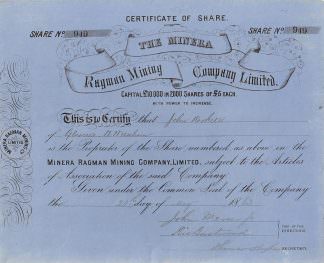 CERTIFICATE OF SHARE.
SHARE Nº 949 SHARE Nº 949
THE MINERA
Ragman Mining Company Limited.
CAPITAL £10,000 IN 2000 SHARES OF £5 EACH.
WITH POWER TO INCREASE.
This is to Certify that John
of
is the Proprietor of the Share numbered as above in the
MINERA RAGMAN MINING COMPANY, LIMITED, subject to the Articles
of Association of the said Company.
Given under the Common Seal of the Company
the day of 18
John
TWO OF THE
DIRECTORS.
SECRETARY.
MINERA RAGMAN MINING COMPANY
LIMITED